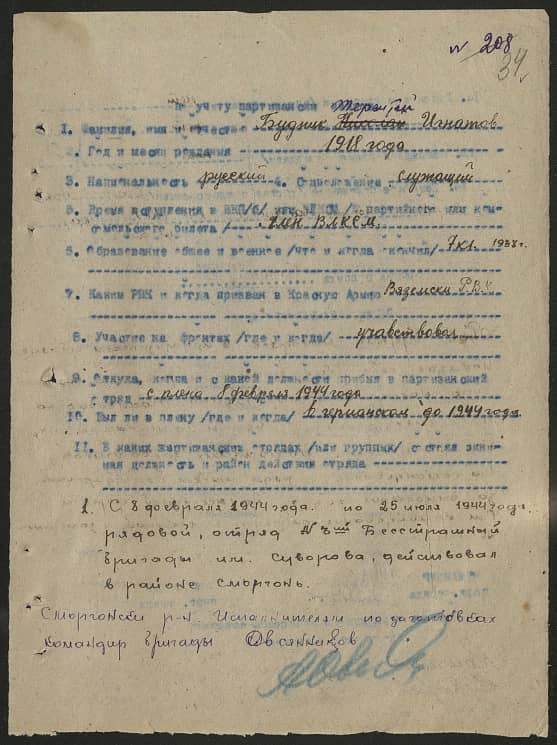 № 208
34
по учету партизански
Терентий
1. Фамилия, имя и отчество Будник Игнатов
2. Год и место рождения 1918 года
3. Национальность русский 4. Служащий
5. Время вступления в ВКП/б/ или ВЛКСМ /№ партийного или ком-
сомольского билета/ член ВЛКСМ
6. Образование общее и военное /что и когда окончил/ 7 кл.
7. Каким РВК и когда призван в Красную Армию Вяземски Р.В.К
8. Участие на фронтах /где и когда/ учавствовал
9. Откуда, когда и с какой должности прибыл в партизанский
отряд с плена 8 февраля 1944 года
10. Был ли в плену /где и когда/ в германском до 1944 года
11. В каких партизанских отрядах /или группах/ состоял зани-
мая должность и район действия отряда
1. С 8 февраля 1944 года по 25 июля 1944 года
рядовой, отряд Бесстрашный
бригады им. Суворова, действовал
в районе Сморгонь.
Сморгонски р-н Исполнителям по заготовках
Командир бригады Овсянников